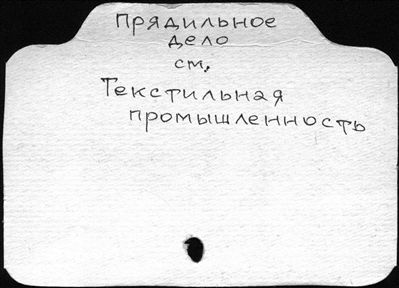 Прядильное
дело
см.
Текстильная
промышленность